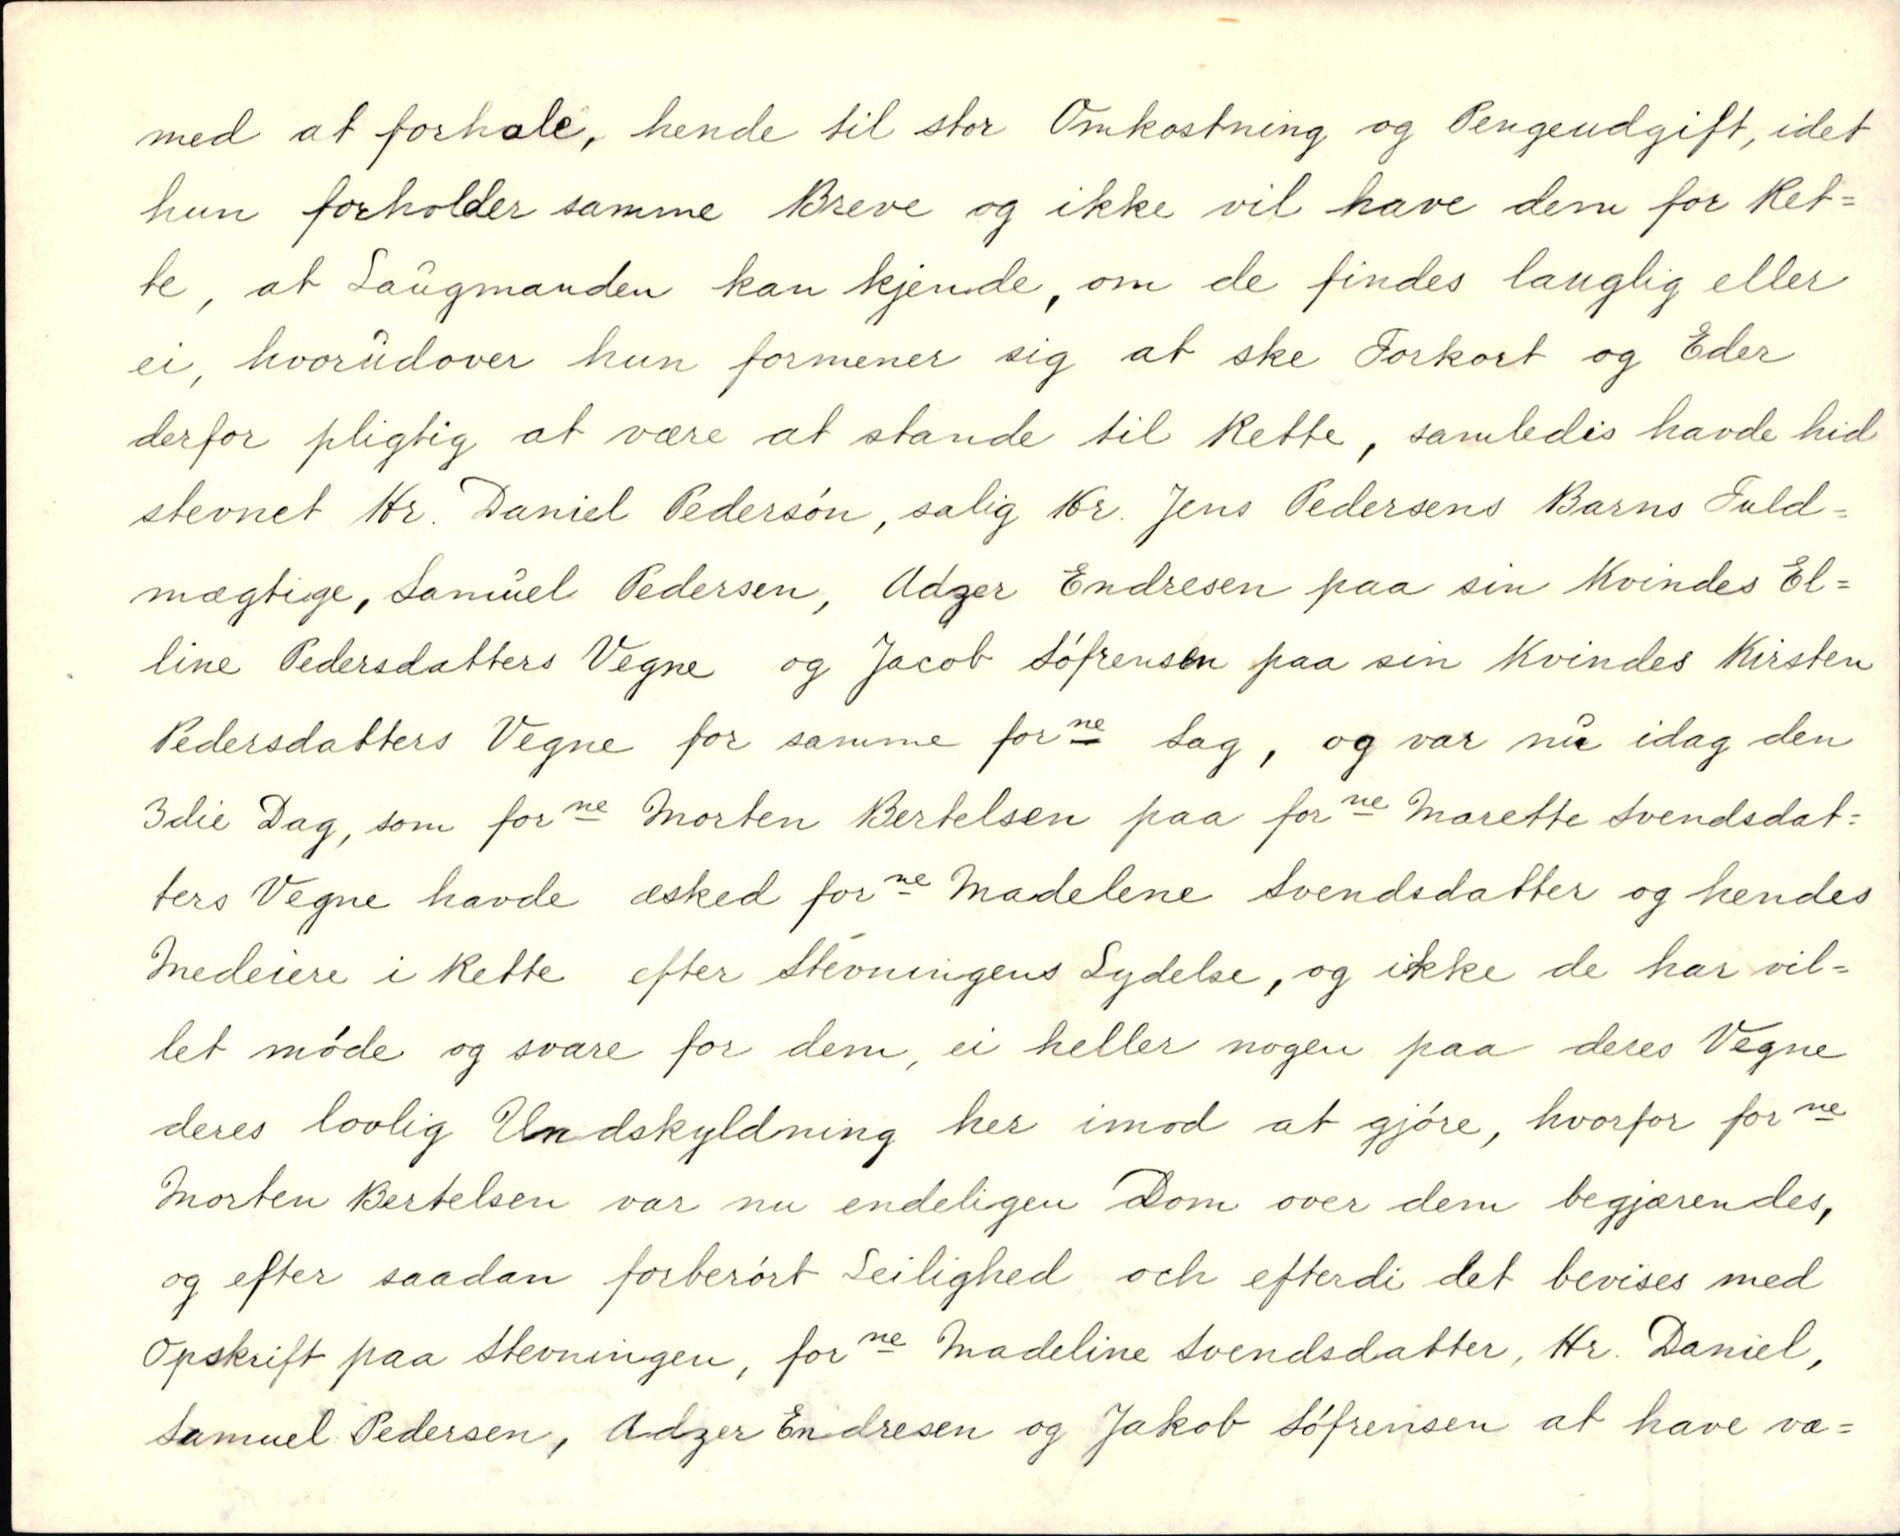 med at forhale, hende til stor Omkostning og Pengeudgift, idet
hun forholder samme Breve og ikke vil have dem for Ret=
te, at Laugmanden kan kjende, om de findes lauglig eller
ei, hvorudover hun formener sig at ske Forkort og Eder
derfor pligtig at være at stande til Rette, samledis havde hid
stevnet Hr. Daniel Pedersón, salig Hr. Jens Pedersens Barns Fuld=
mægtige, Samuel Pedersen, Adzer Endresen paa sin Kvindes El=
line Pedersdatters Vegne og Jacob Sófrensen paa sin Kvindes Kirsten
Pedersdatters Vegne for samme forne Sag, og var nu idag den
3die Dag, som forne Morten Bertelsen paa forne Marette Svendsdat=
ters Vegne havde æsked forne Madelene Svendsdatter og hendes
Medeiere i Rette efter Stevningens Lydelse, og ikke de har vil=
let móde og svare for dem, ei heller nogen paa deres Vegne
deres lovlig Undskyldning her imod at gjóre, hvorfor forne
Morten Bertelsen var nu endeligen Dom over dem begjærendes,
og efter saadan forberórt Leilighed och efterdi det bevises med
Opskrift paa Stevningen, forne Madeline Svendsdatter, Hr. Daniel,
Samuel Pedersen, Adzer Endresen og Jakob Sófrensen at have væ=